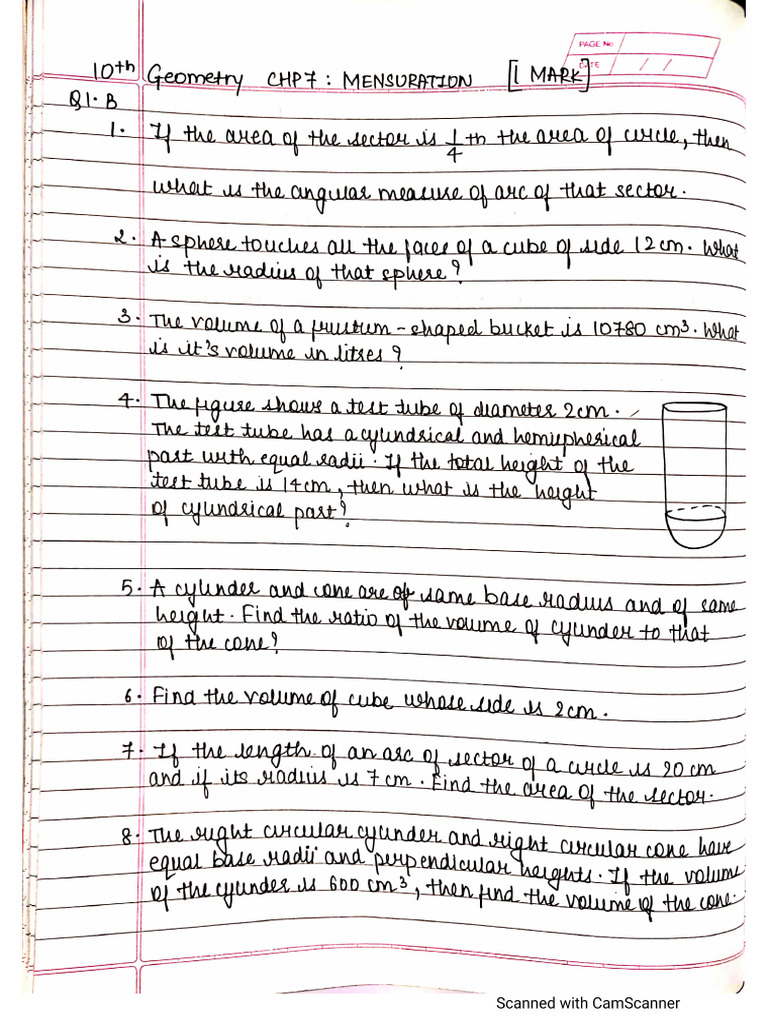 PAGE No.
DATE / /
10th Geometry CHP 7 : MENSURATION [1 MARK]
Q1. B
1. If the area of the sector is 1/4 th the area of circle, then
what is the angular measure of arc of that sector.
2. A sphere touches all the faces of a cube of side 12cm. What
is the radius of that sphere?
3. The volume of a frustrum - shaped bucket is 10780 cm³. What
is it's volume in litres?
4. The figure shows a test tube of diameter 2cm.
The test tube has a cylindrical and hemispherical
part with equal radii. If the total height of the
test tube is 14cm, then what is the height
of cylindrical part?
5. A cylinder and cone are of same base radius and of same
height. Find the ratio of the volume of cylinder to that
of the cone?
6. Find the volume of cube whose side is 2cm.
7. If the length of an arc of sector of a circle is 20 cm
and if its radius is 7 cm. Find the area of the sector.
8. The right circular cylinder and right circular cone have
equal base radii and perpendicular heights. If the volume
of the cylinder is 600 cm³, then find the volume of the cone.
Scanned with CamScanner